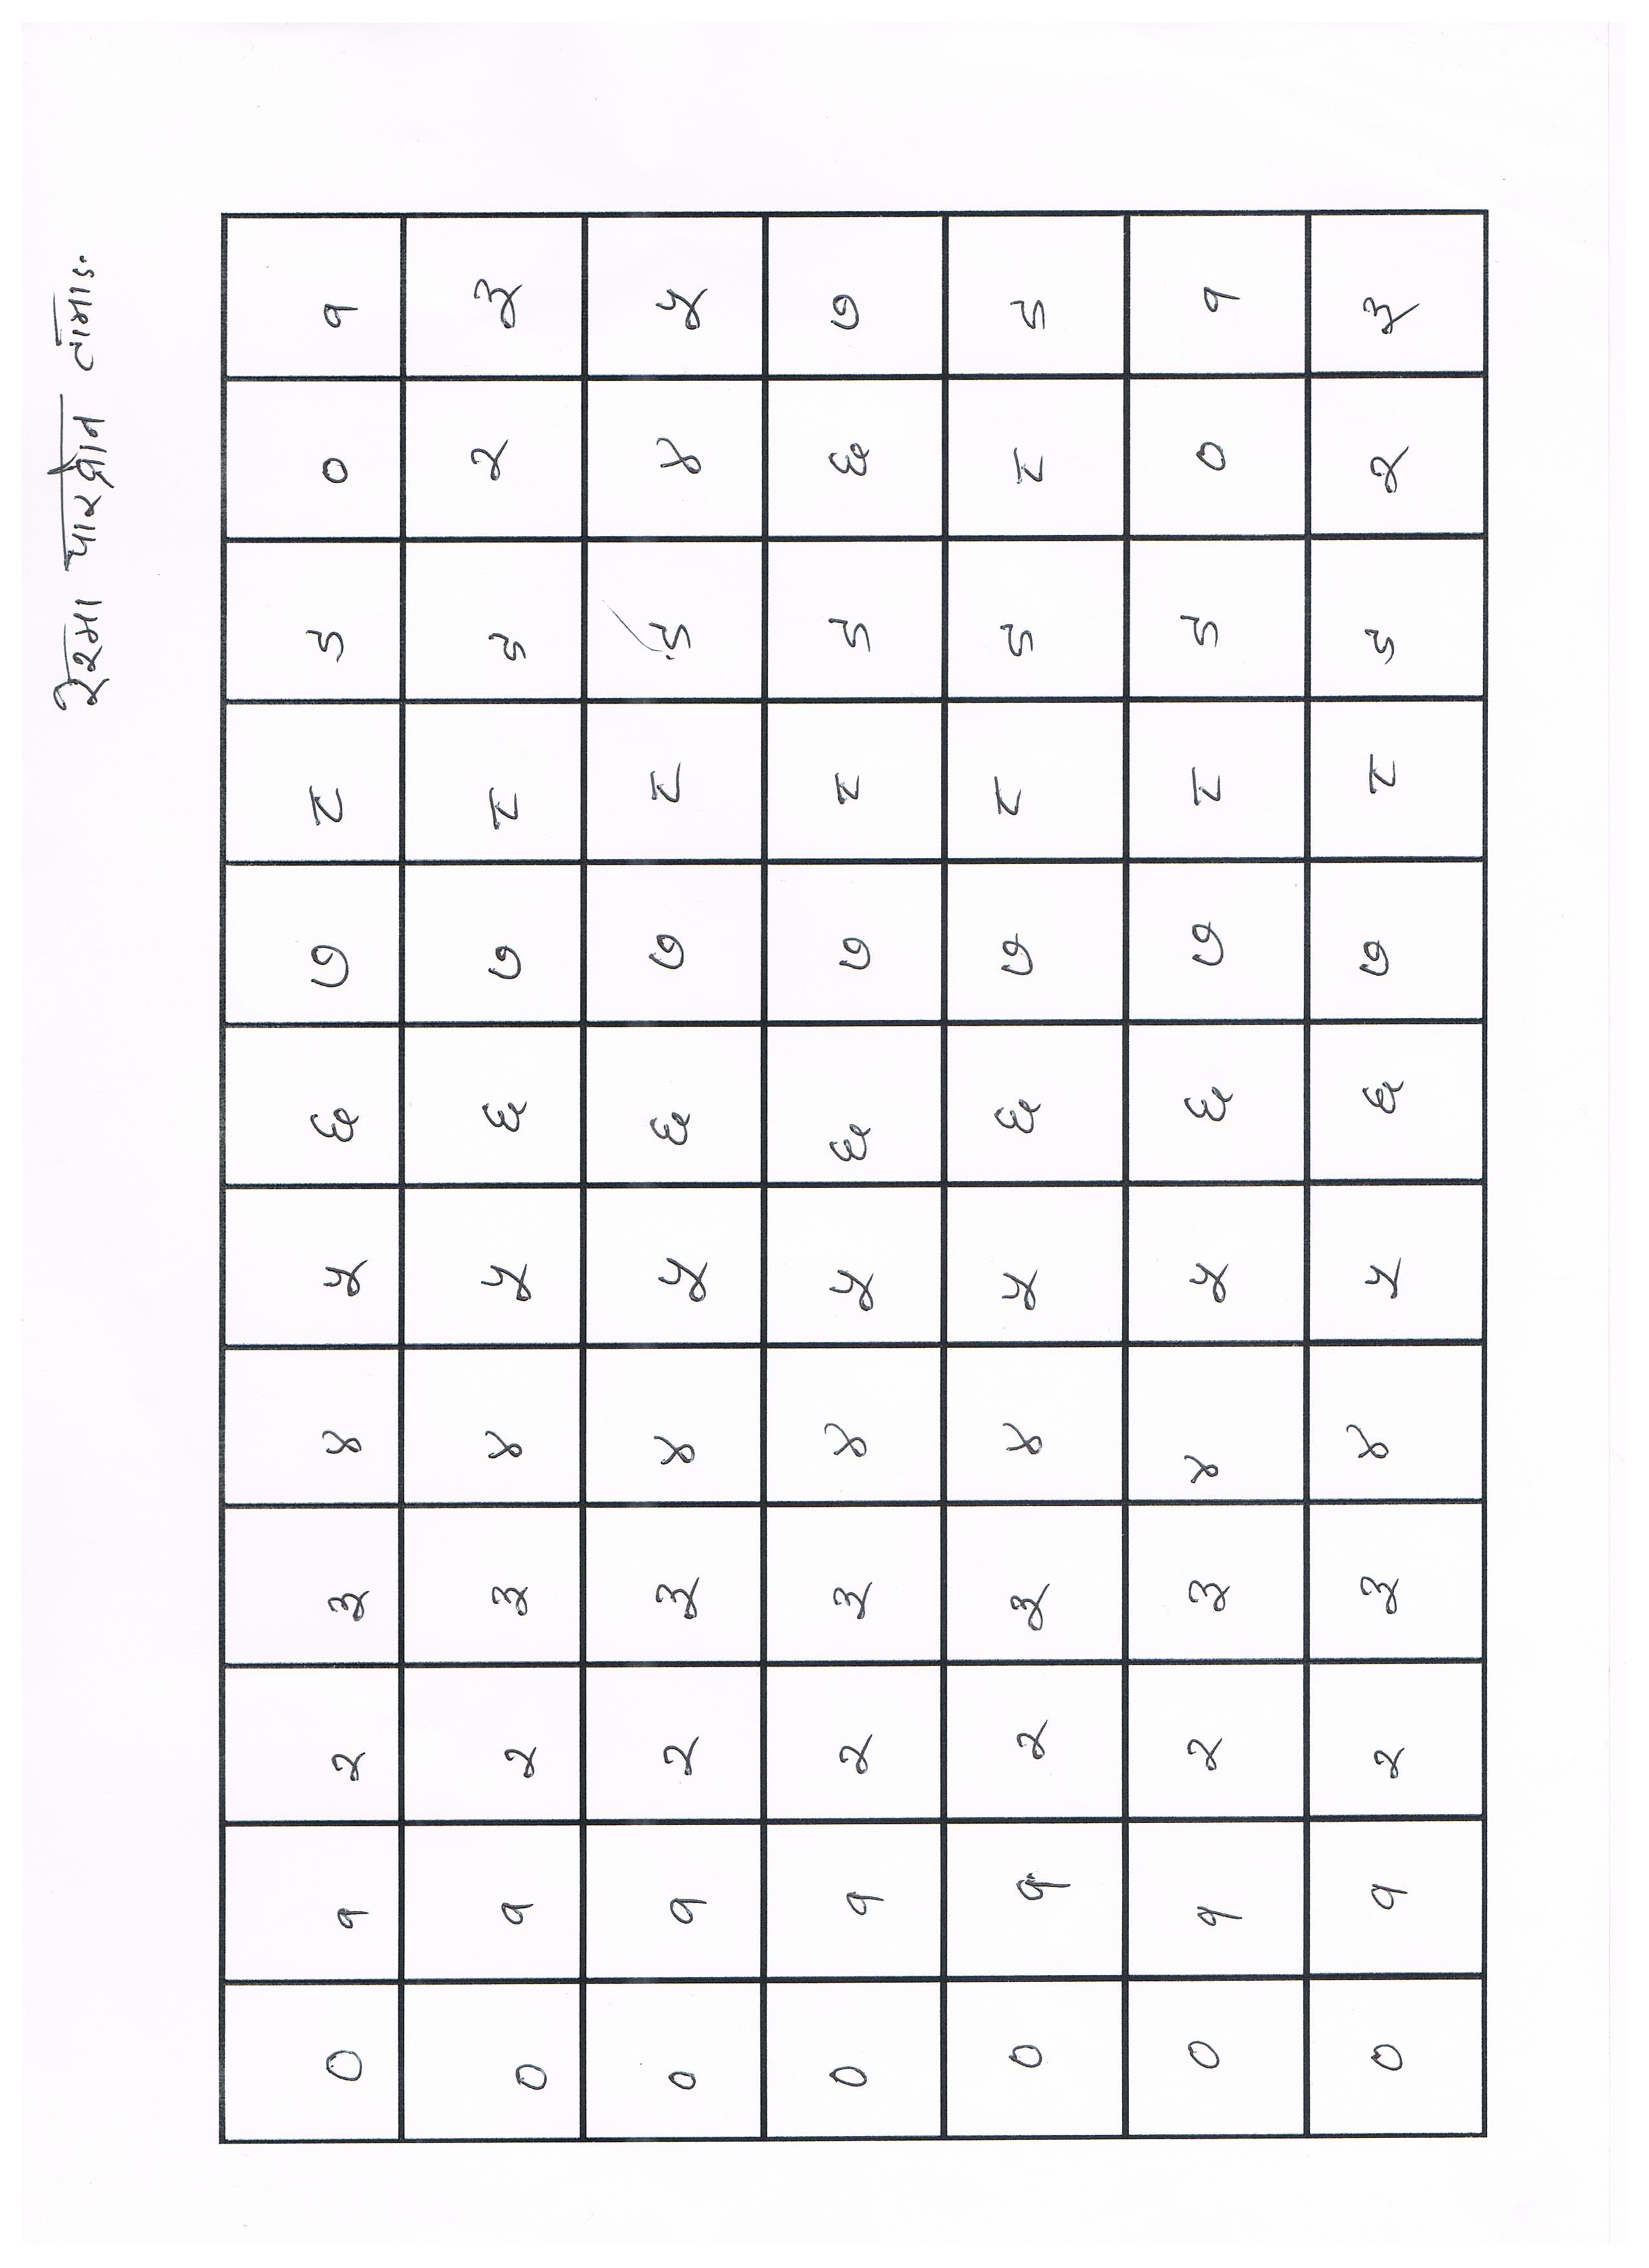 रेश्मा पाख्रीन तामाङ
० १ २ ३ ४ ५ ६ ७ ८ ९ ० १
० १ २ ३ ४ ५ ६ ७ ८ ९ २ ३
० १ २ ३ ४ ५ ६ ७ ८ ९ ४ ५
० १ २ ३ ४ ५ ६ ७ ८ ९ ६ ७
० १ २ ३ ४ ५ ६ ७ ८ ९ ८ ९
० १ २ ३ ४ ५ ६ ७ ८ ९ ० १
० १ २ ३ ४ ५ ६ ७ ८ ९ २ ३